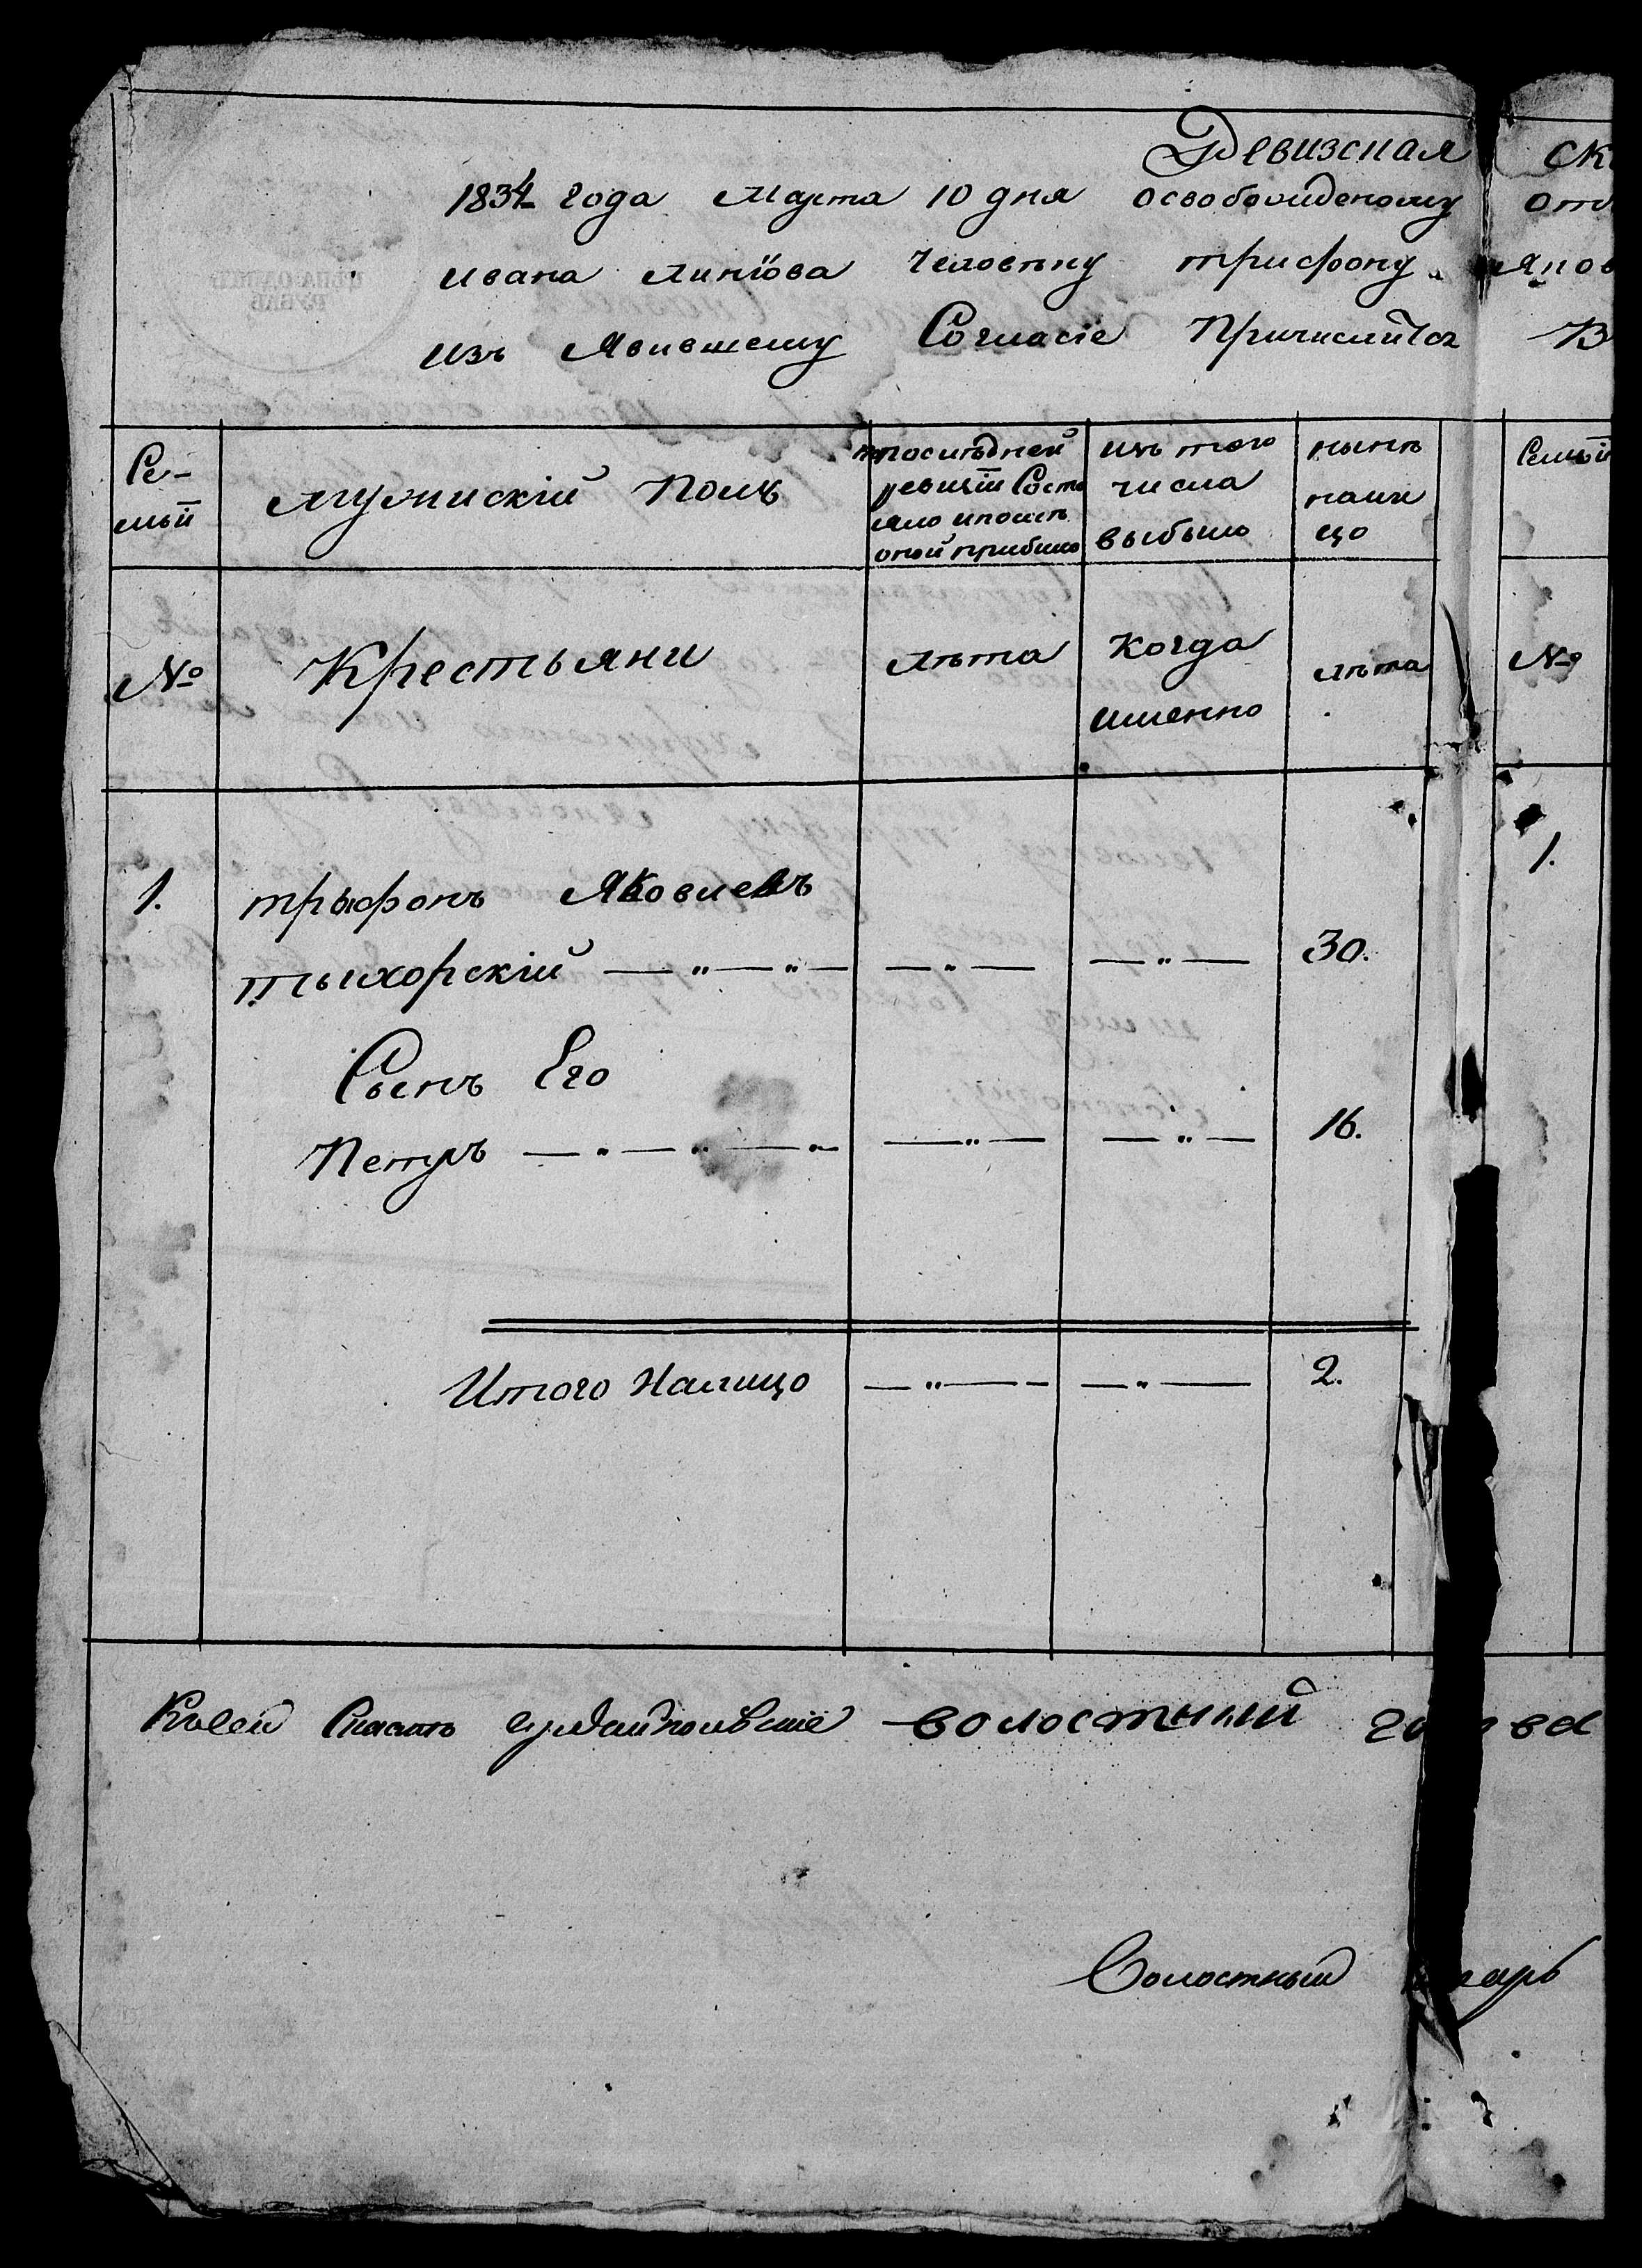 Ревизская ск
1834 года Марта 10 дня освобожденому отъ
ивана линїова человѣку трифону яков
изъ явившему Согласіе Причислится В
Се-
мьи
мужискій Полъ
Семьи
послѣдней
ревизіи Состо
яло и послѣ
оной прибыло
изъ того
числа
выбыло
нынѣ
нали
цо
№
Крестьяни
лѣта
когда
именно
лѣта
№
1.
трыфонъ Яковлевъ
1.
тыхорскій — „ — „ — — „ — — „ — 30.
Сынъ Его
Петръ — „ — „ — „ — „ — — „ — 16.
Итого Налицо — „ — — — „ — 2.
Ксей волостный
Волостный